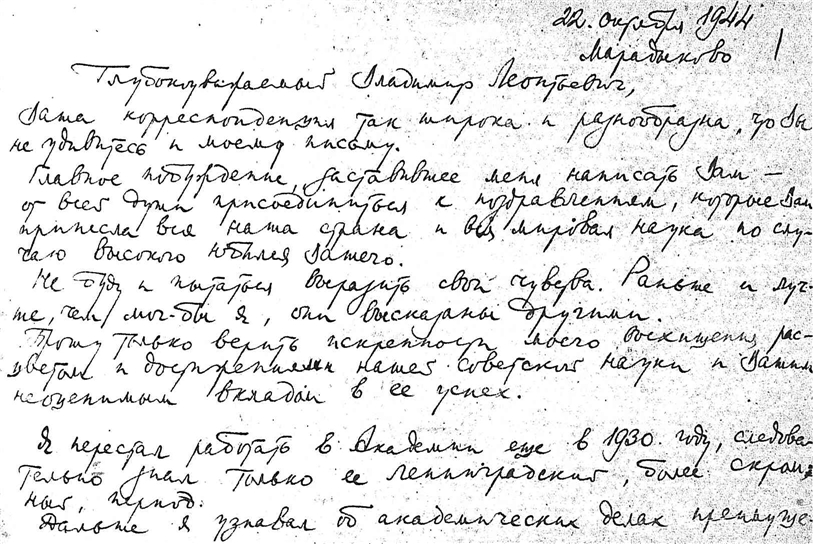 22. октября 1944
Марадыково
1
Глубокоуважаемый Владимир Леонтьевич,
Ваша корреспонденция так широка и разнообразна, что Вы
не удивитесь и моему письму.
Главное побуждение, заставившее меня написать Вам —
от всей души присоединиться к поздравлениям, которые Вам
принесла вся наша страна и вся мировая наука по слу-
чаю высокого юбилея Вашего.
Не буду и пытаться выразить свои чувства. Раньше и луч-
ше, чем мог-бы я, они высказаны другими.
Прошу только верить искренности моего восхищения рас-
цветом и достижениями нашей советской науки и Вашим
неоценимым вкладом в ее успех.
Я перестал работать в Академии еще в 1930. году, следова-
тельно знал только ее ленинградский, более скром-
ный, период.
Дальше я узнавал об академических делах преимуще-